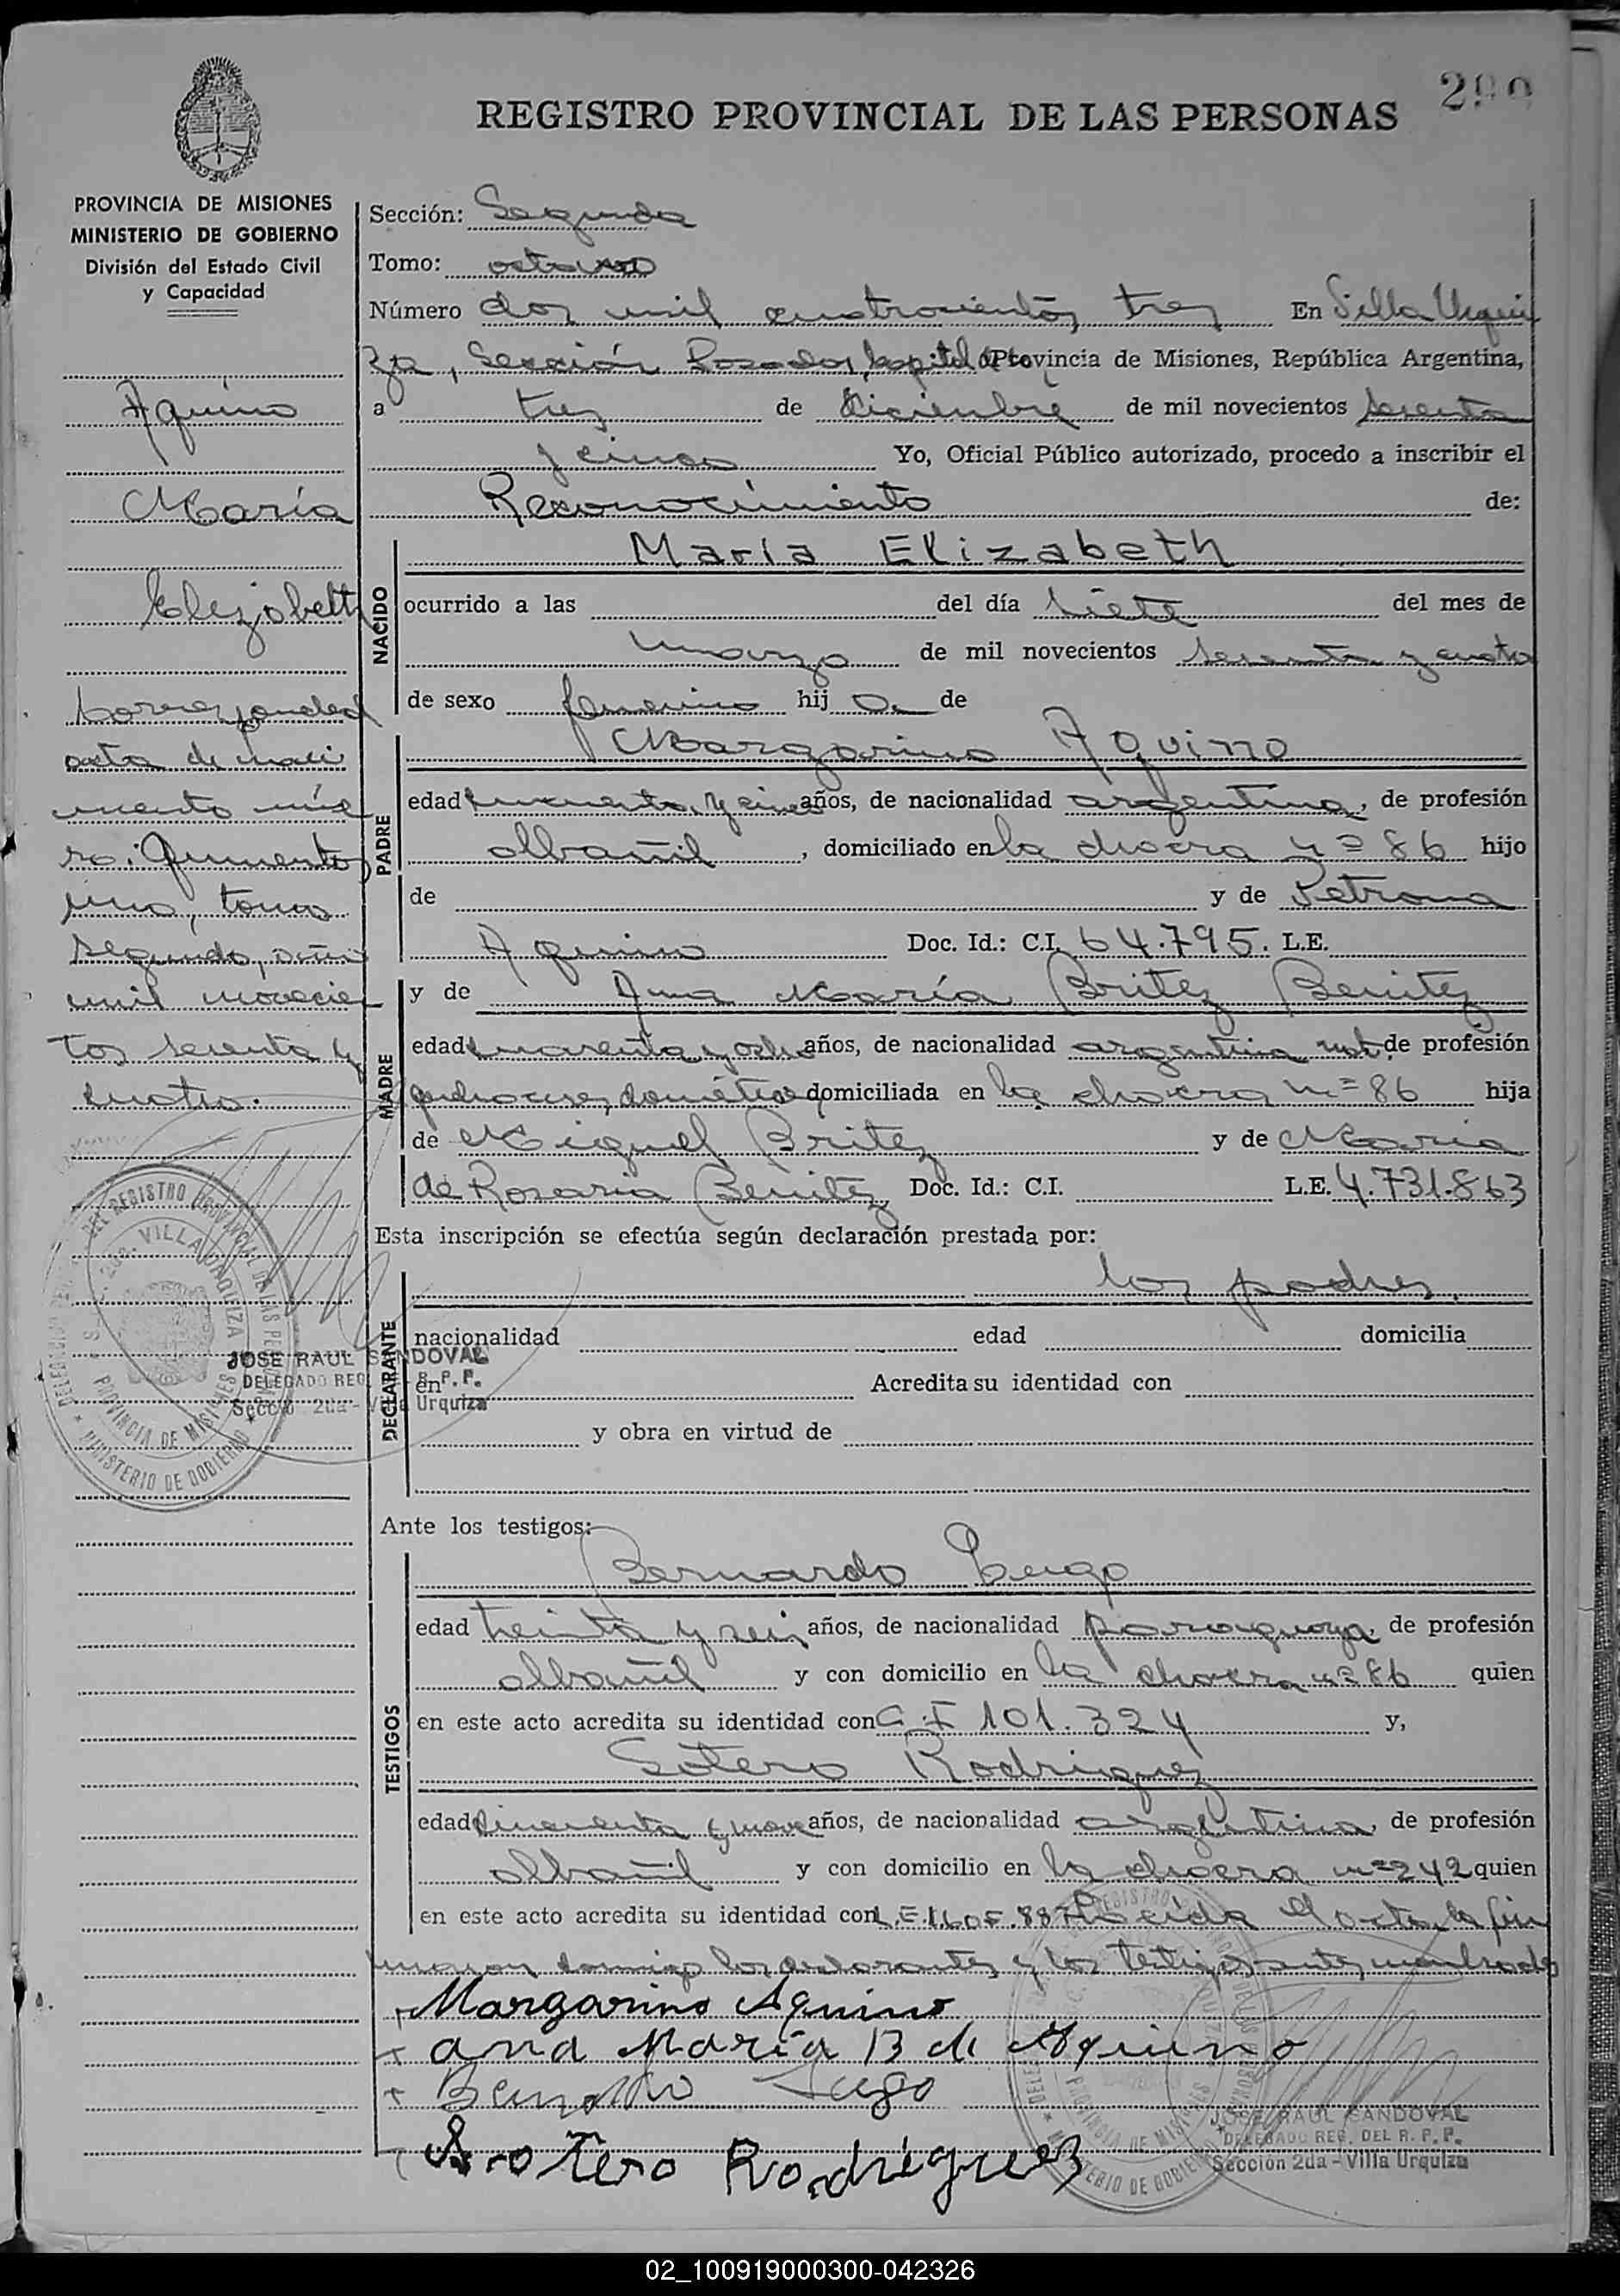 REGISTRO PROVINCIAL DE LAS PERSONAS
PROVINCIA DE MISIONES
MINISTERIO DE GOBIERNO
División del Estado Civil
y Capacidad
Aquino
María
Elizabeth
Corresponde al
acta de naci
miento núme
ro: Quinientos
uno, tomo
segundo, año
mil novecien
tos sesenta y
cuatro.
JOSE RAUL SANDOVAL
DELEGADO REG. P. P.
Sección 2da - Villa Urquiza
Sección: Segunda
Tomo: octavo
Número dos mil cuatrocientos tres En Villa Urqui
za, Sección Posadas, Capital Provincia de Misiones, República Argentina,
a tres de diciembre de mil novecientos sesenta
y cinco Yo, Oficial Público autorizado, procedo a inscribir el
Reconocimiento de:
NACIDO
María Elizabeth
ocurrido a las del día siete del mes de
marzo de mil novecientos sesenta y cuatro
de sexo femenino hija de
PADRE
Margarino Aquino
edad cincuenta y cinco años, de nacionalidad argentina, de profesión
albañil, domiciliado en la chacra nº 86 hijo
de y de Petrona
Aquino Doc. Id.: C.I. 64.795. L.E.
MADRE
y de Ana María Britez Benitez
edad cuarenta y ocho años, de nacionalidad argentina de profesión
domiciliada en la chacra nº 86 hija
de Miguel Britez y de María
de Rosaria Benitez Doc. Id.: C.I. L.E. 4.731.863
Esta inscripción se efectúa según declaración prestada por:
DECLARANTE
los padres.
nacionalidad edad domicilia
en Acredita su identidad con
y obra en virtud de
Ante los testigos:
TESTIGOS
Bernardo Lugo
edad treinta y seis años, de nacionalidad paraguaya, de profesión
albañil y con domicilio en la chacra nº 86 quien
en este acto acredita su identidad con C.I 101.324 y,
Sotero Rodriguez
edad cincuenta y nueve años, de nacionalidad argentina, de profesión
albañil y con domicilio en la chacra nº 242 quien
en este acto acredita su identidad con L.E. Leída el acta, la fir
maron conmigo los declarantes y los testigos antes nombrados
Margarino Aquino
Ana María B de Aquino
Bernardo Lugo
Sotero Rodriguez
JOSE RAUL SANDOVAL
DELEGADO REG. DEL R. P. P.
Sección 2da - Villa Urquiza
02_100919000300-042326